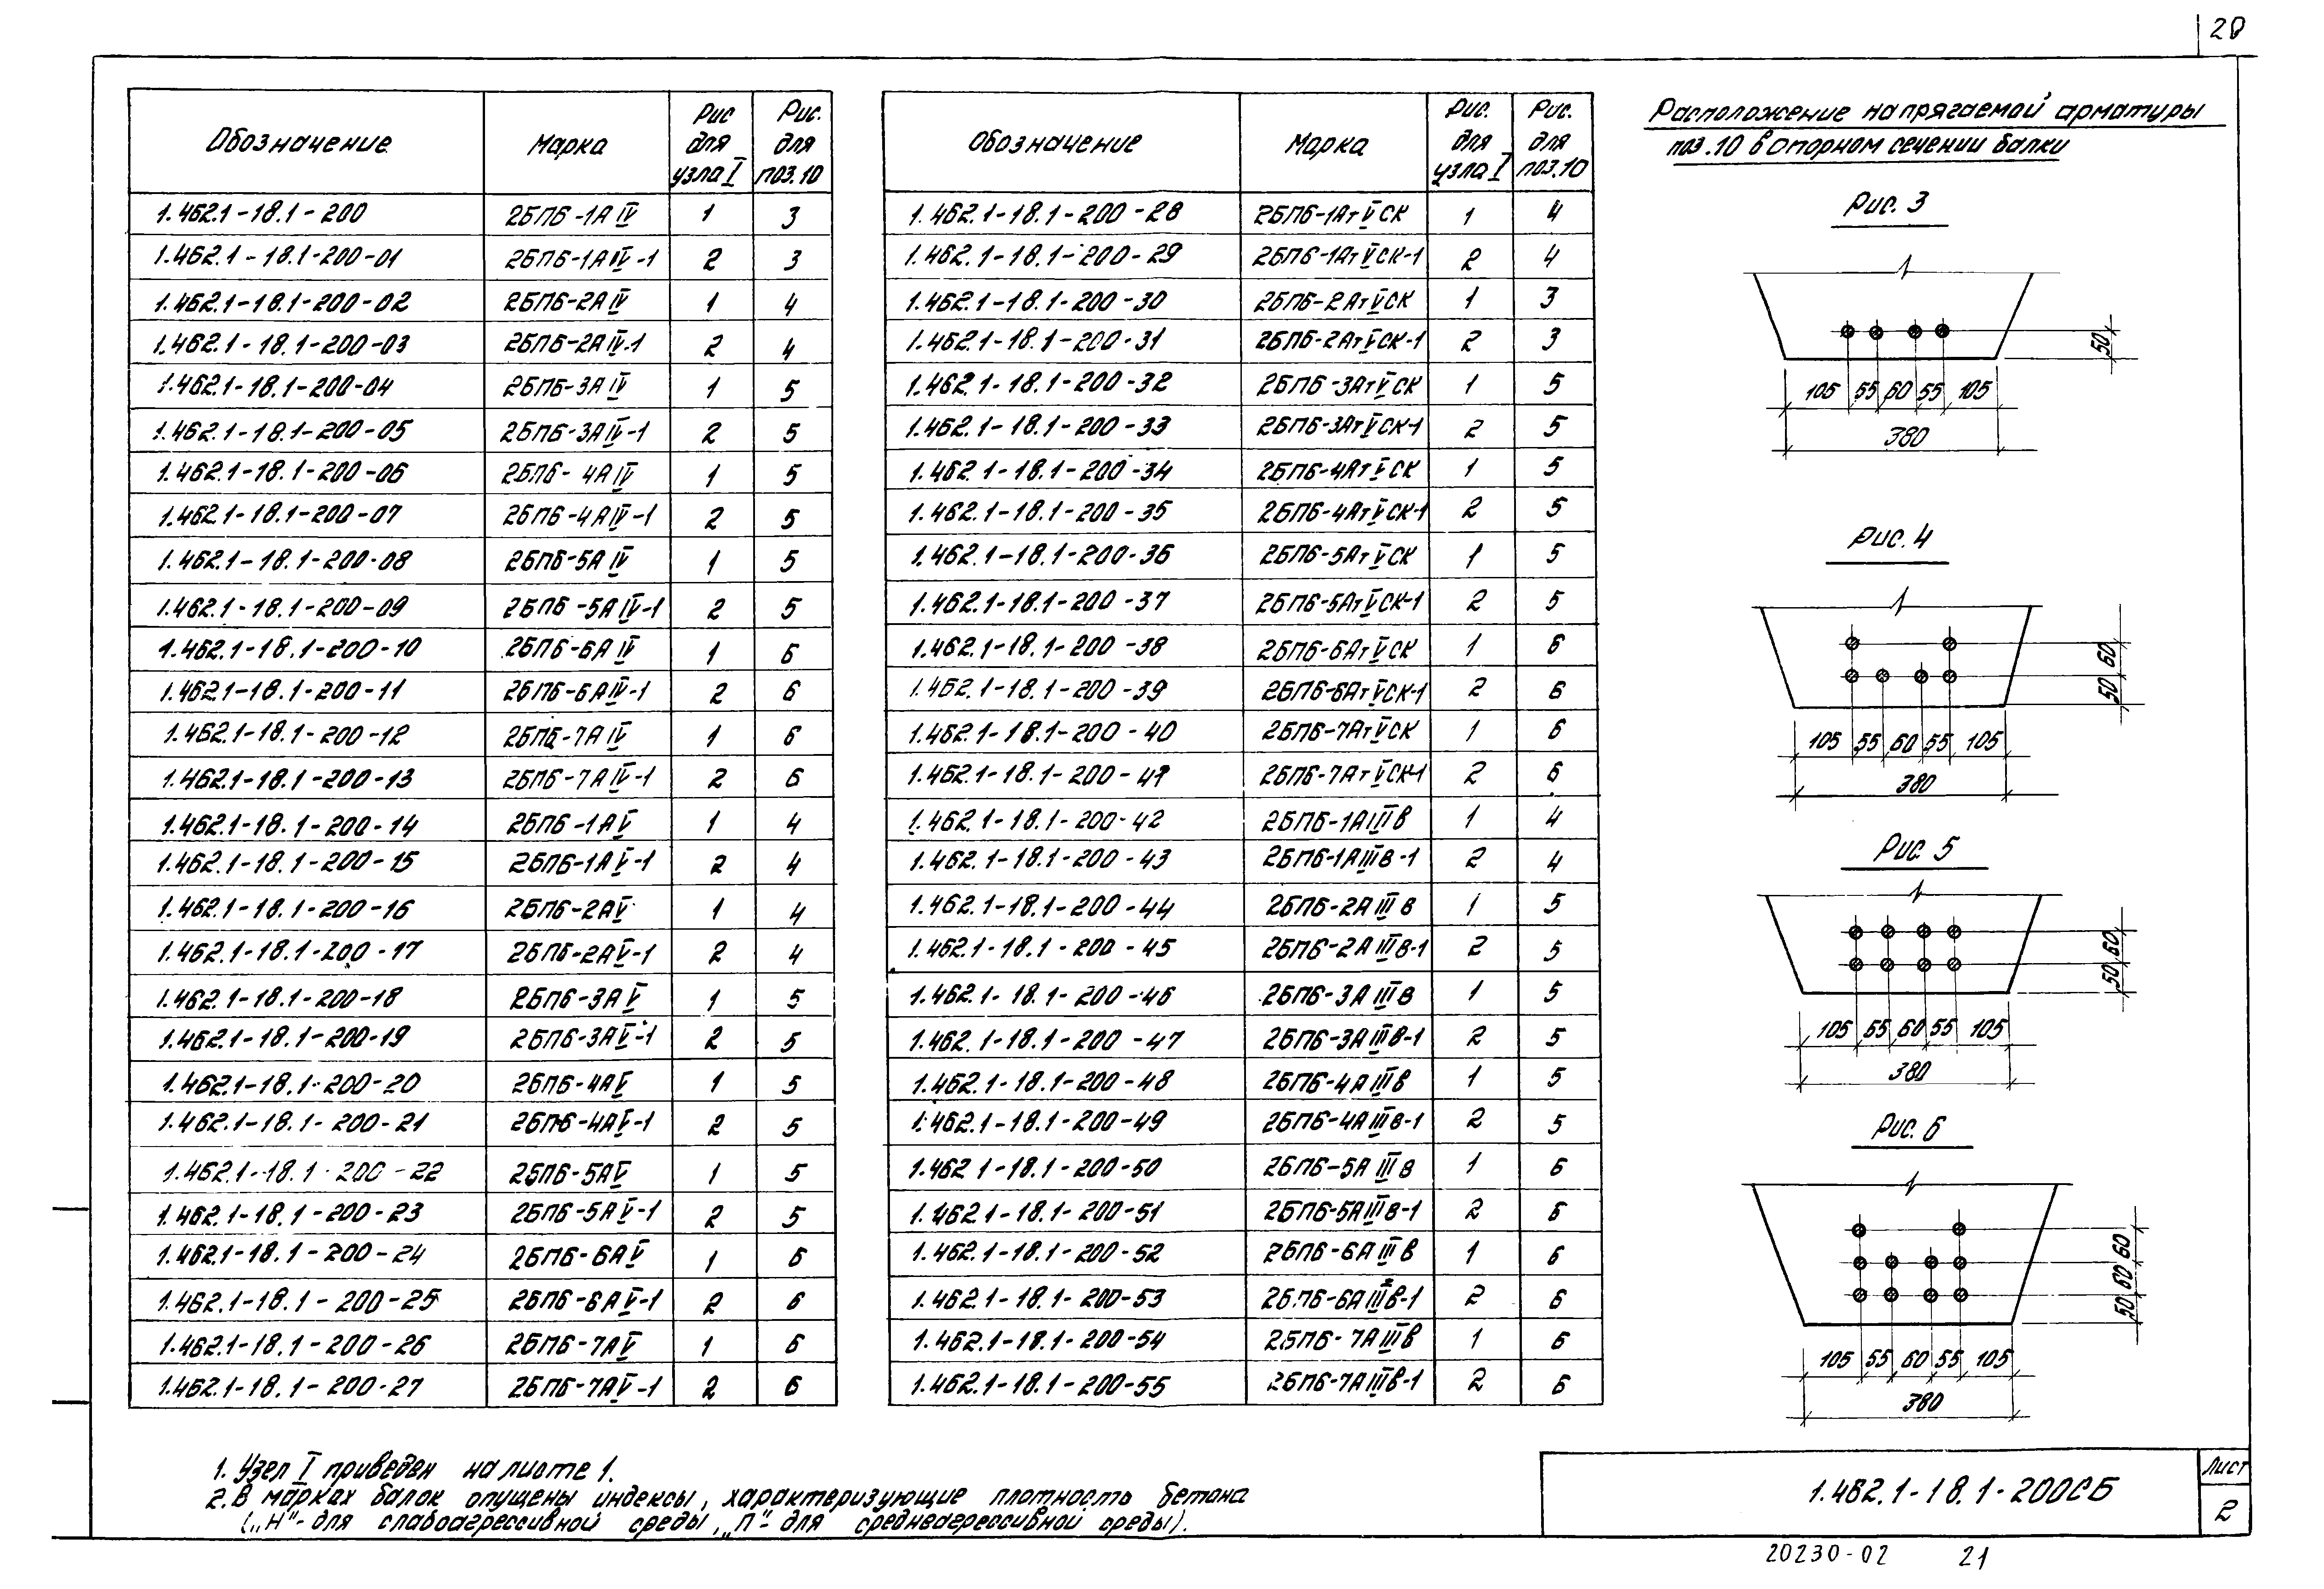 20
Обозначение Марка Рис для узла I Рис. для поз.10
1.462.1-18.1-200 2БП6-1АIV 1 3
1.462.1-18.1-200-01 2БП6-1АIV-1 2 3
1.462.1-18.1-200-02 2БП6-2АIV 1 4
1.462.1-18.1-200-03 2БП6-2АIV-1 2 4
1.462.1-18.1-200-04 2БП6-3АIV 1 5
1.462.1-18.1-200-05 2БП6-3АIV-1 2 5
1.462.1-18.1-200-06 2БП6-4АIV 1 5
1.462.1-18.1-200-07 2БП6-4АIV-1 2 5
1.462.1-18.1-200-08 2БП6-5АIV 1 5
1.462.1-18.1-200-09 2БП6-5АIV-1 2 5
1.462.1-18.1-200-10 2БП6-6АIV 1 6
1.462.1-18.1-200-11 2БП6-6АIV-1 2 6
1.462.1-18.1-200-12 2БП6-7АIV 1 6
1.462.1-18.1-200-13 2БП6-7АIV-1 2 6
1.462.1-18.1-200-14 2БП6-1АV 1 4
1.462.1-18.1-200-15 2БП6-1АV-1 2 4
1.462.1-18.1-200-16 2БП6-2АV 1 4
1.462.1-18.1-200-17 2БП6-2АV-1 2 4
1.462.1-18.1-200-18 2БП6-3АV 1 5
1.462.1-18.1-200-19 2БП6-3АV-1 2 5
1.462.1-18.1-200-20 2БП6-4АV 1 5
1.462.1-18.1-200-21 2БП6-4АV-1 2 5
1.462.1-18.1-200-22 2БП6-5АV 1 5
1.462.1-18.1-200-23 2БП6-5АV-1 2 5
1.462.1-18.1-200-24 2БП6-6АV 1 6
1.462.1-18.1-200-25 2БП6-6АV-1 2 6
1.462.1-18.1-200-26 2БП6-7АV 1 6
1.462.1-18.1-200-27 2БП6-7АV-1 2 6
Обозначение Марка Рис. для узла I Рис. для поз.10
1.462.1-18.1-200-28 2БП6-1АтVСК 1 4
1.462.1-18.1-200-29 2БП6-1АтVСК-1 2 4
1.462.1-18.1-200-30 2БП6-2АтVСК 1 3
1.462.1-18.1-200-31 2БП6-2АтVСК-1 2 3
1.462.1-18.1-200-32 2БП6-3АтVСК 1 5
1.462.1-18.1-200-33 2БП6-3АтVСК-1 2 5
1.462.1-18.1-200-34 2БП6-4АтVСК 1 5
1.462.1-18.1-200-35 2БП6-4АтVСК-1 2 5
1.462.1-18.1-200-36 2БП6-5АтVСК 1 5
1.462.1-18.1-200-37 2БП6-5АтVСК-1 2 5
1.462.1-18.1-200-38 2БП6-6АтVСК 1 6
1.462.1-18.1-200-39 2БП6-6АтVСК-1 2 6
1.462.1-18.1-200-40 2БП6-7АтVСК 1 6
1.462.1-18.1-200-41 2БП6-7АтVСК-1 2 6
1.462.1-18.1-200-42 2БП6-1АIIIв 1 4
1.462.1-18.1-200-43 2БП6-1АIIIв-1 2 4
1.462.1-18.1-200-44 2БП6-2АIIIв 1 5
1.462.1-18.1-200-45 2БП6-2АIIIв-1 2 5
1.462.1-18.1-200-46 2БП6-3АIIIв 1 5
1.462.1-18.1-200-47 2БП6-3АIIIв-1 2 5
1.462.1-18.1-200-48 2БП6-4АIIIв 1 5
1.462.1-18.1-200-49 2БП6-4АIIIв-1 2 5
1.462.1-18.1-200-50 2БП6-5АIIIв 1 6
1.462.1-18.1-200-51 2БП6-5АIIIв-1 2 6
1.462.1-18.1-200-52 2БП6-6АIIIв 1 6
1.462.1-18.1-200-53 2БП6-6АIIIв-1 2 6
1.462.1-18.1-200-54 2БП6-7АIIIв 1 6
1.462.1-18.1-200-55 2БП6-7АIIIв-1 2 6
Расположение напрягаемой арматуры
поз.10 в опорном сечении балки
Рис. 3
50
105 55 60 55 105
380
Рис. 4
60
50
105 55 60 55 105
380
Рис 5
60
50
105 55 60 55 105
380
Рис. 6
60
60
50
105 55 60 55 105
380
1. Узел I приведен на листе 1.
2. В марках балок опущены индексы, характеризующие плотность бетона
(„Н"- для слабоагрессивной среды, „П"- для среднеагрессивной среды).
1.462.1-18.1-200СБ
Лист
2
20230-02 21